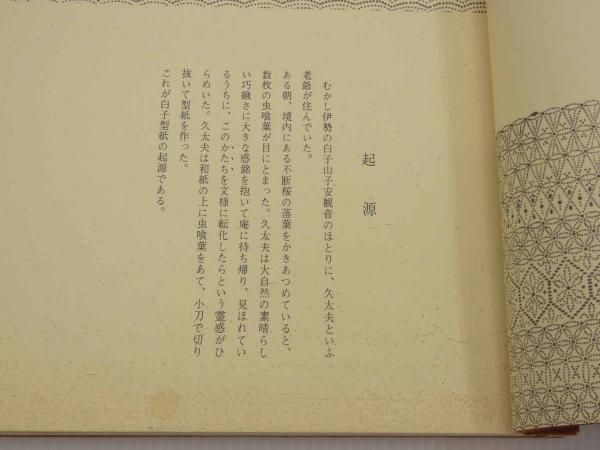 起源
むかし伊勢の白子山子安観音のほとりに、久太夫といふ
老爺が住んでいた。
ある朝、境内にある不断桜の落葉をかきあつめていると、
数枚の虫喰葉が目にとまった。久太夫は大自然の素晴らし
い巧緻さに大きな感銘を抱いて庵に持ち帰り、見ほれてい
るうちに、このかたちを文様に転化したらという霊感がひ
らめいた。久太夫は和紙の上に虫喰葉をあて、小刀で切り
抜いて型紙を作った。
これが白子型紙の起源である。